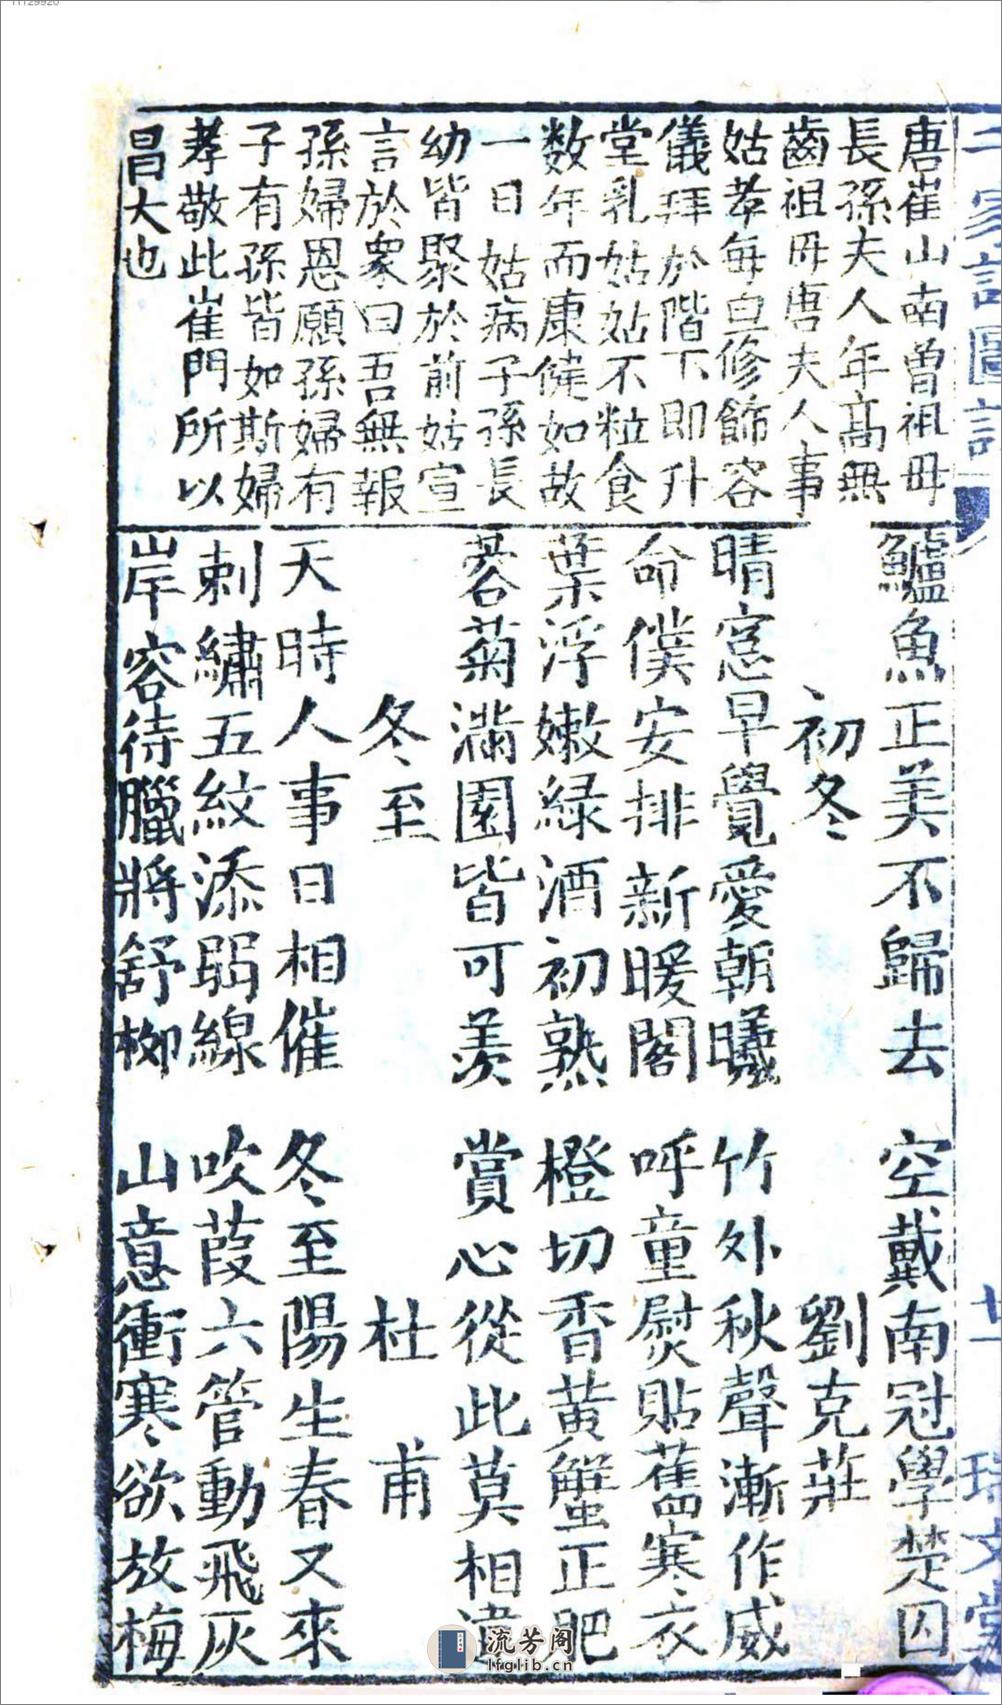 唐崔山南曾祖母
長孫夫人年高無
齒祖母唐夫人事
姑孝每旦修飾容
儀拜於階下即升
堂乳姑姑不粒食
数年而康健如故
一日姑病子孫長
幼皆聚於前姑宣
言於衆曰吾無報
孫婦恩願孫婦有
子有孫皆如斯婦
孝敬此崔門所以
昌大也
鱸魚正美不歸去 空戴南冠學楚囚
初冬 劉克莊
晴窓早覺愛朝曦 竹外秋聲漸作威
命僕安排新暖閣 呼童熨貼舊寒衣
葉浮嫩緑酒初熟 橙切香黄蟹正肥
蓉菊滿園皆可羨 賞心從此莫相違
冬至 杜甫
天時人事日相催 冬至陽生春又來
刺繡五紋添弱線 吹葭六管動飛灰
岸容待臘將舒柳 山意衝寒欲放梅
流芳阁
lfglib.cn